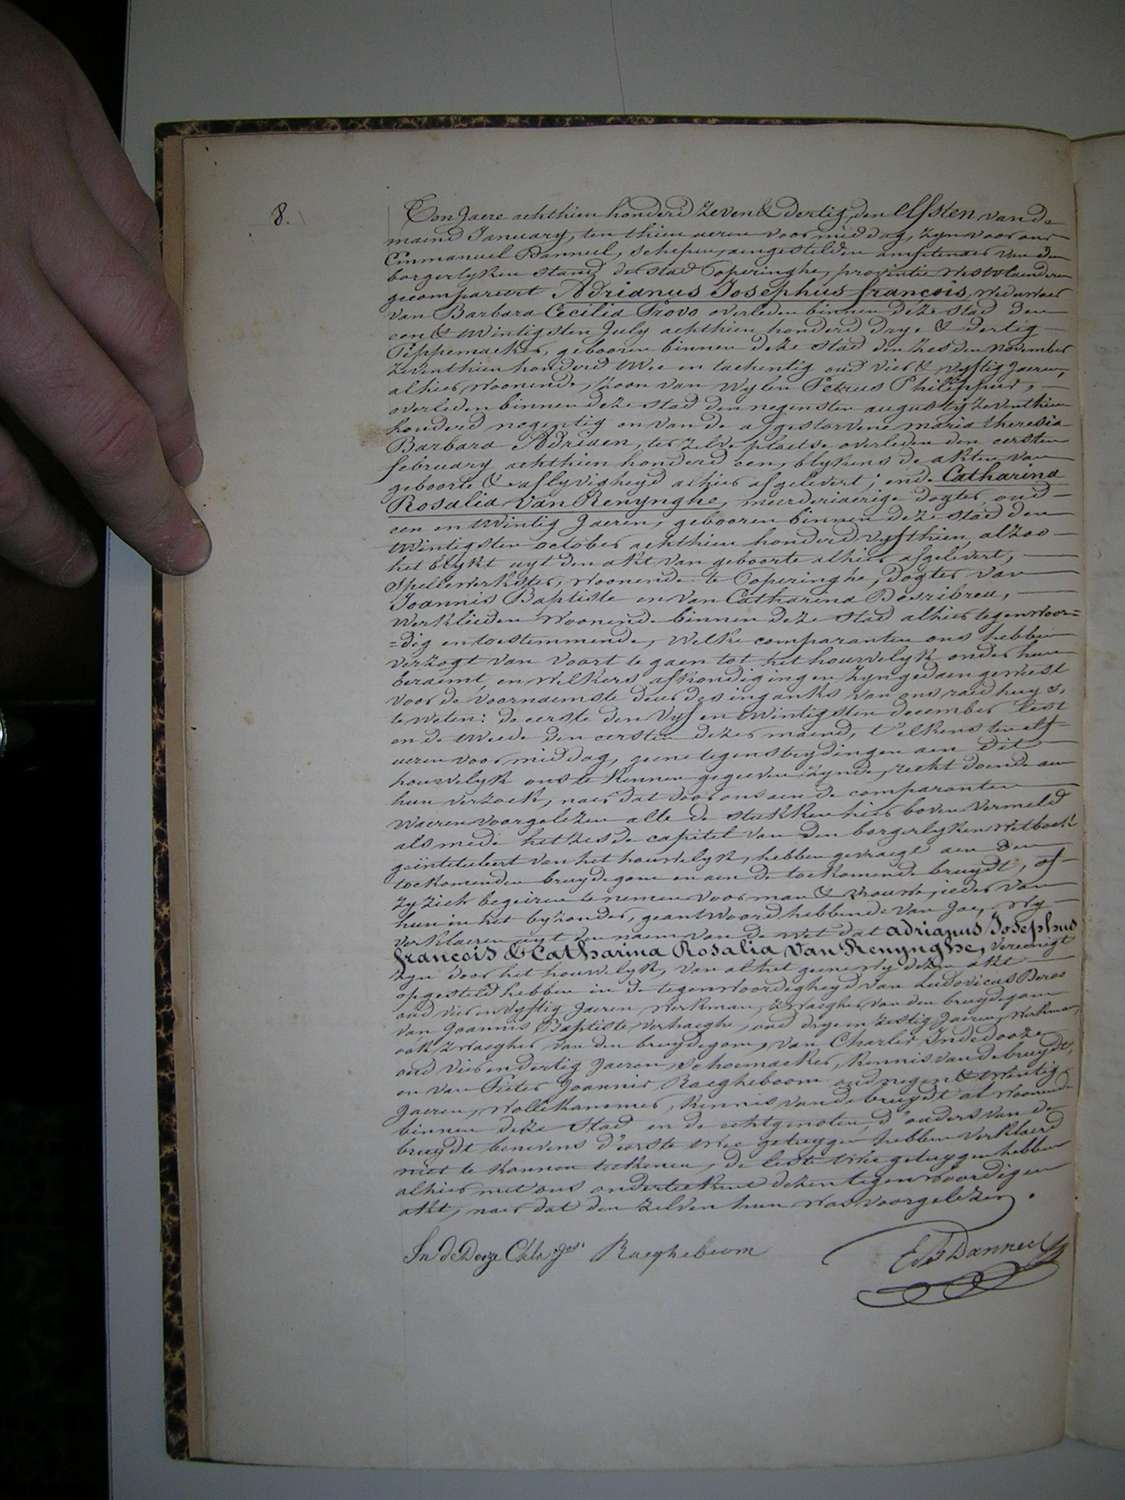 8.
Ten Jaere achthien honderd Zeven & dertig den elfsten van de
maend January, ten thien ueren voormiddag, zyn voor ons
Emmanuel Banneel, schepen, aengestelden amptenaer van den
borgerlyken stand der stad Poperinghe, provintie Westvlaenderen
gecompareert Adrianus Josephus francois, Weduwaer
van Barbara Cecilia Provo overleden binnen deze stad den
een & twintigsten July achthien honderd drye & dertig
Pippemaeker, gebooren binnen deze stad den zesden November
zeventhien honderd twee en tachentig oud vier & vyftig Jaeren,
alhier woonende, zoon van wylen Petrus Philippus,
overleden binnen deze stad den negensten augusty zeventhien
honderd negentig en van de afgestorvene maria theresia
Barbara Adriaen, ter zelve plaetse overleden den eersten
february achthien honderd een, blykens de akten van
geboorte & aflyvigheyd alhier afgelevert; ende Catharina
Rosalia Van Renynghe, meerderjaerige dogter, oud
een en twintig Jaeren, gebooren binnen deze stad den
twintigsten october achthien honderd vyfthien, alzoo
het blykt uyt den akt van geboorte alhier afgelevert,
Spellewerkster, woonende te Poperinghe, Dogter van
Joannis Baptiste en van Catharina Desribreu,
Werklieden woonende binnen deze stad alhier tegenwoor=
=dig en toestemmende, welke comparanten ons hebben
verzogt van voort te gaen tot het houwelyk onder hun
beraemt en welkers afkondigingen zyn gedaen geweest
voor de voornaemste deur des ingangs van ons raedhuys,
te weten: de eerste den vyf en twintigsten december lest
en de tweede den eersten dezer maend, telkens ten elf
ueren voormiddag, geene tegenstrydingen aen dit
houwelyk ons te kennen gegeeven zynde, recht doende aen
hun verzoek, naer dat door ons aen de comparanten
waeren voorgelezen alle de stukken hier boven vermeld
als mede het zesde capitel van den borgerlyken wetboek
geïntituleert van het houwelyk, hebben gevraegt aen den
toekomenden bruydegom en aen de toekomende bruydt, of
zy zich begeiren te nemen voor man & vrouwe, ieder van
hun in het byzonder, geantwoord hebbende van Jae, wy
verklaeren uyt den naem van de wet dat adrianus Josephus
francois & Catharina Rosalia Van Renynghe, vereenigt
zyn door het houwelyk, van al het geene wy dezen akt
opgesteld hebben in de tegenwoordigheyd van Ludovicus Deroo
oud vier en vyftig Jaeren, Werkman, Zwaegher van den bruydegom
van Joannis Baptiste Verhaeghe, oud drye en zestig Jaeren, Werkman,
ook Zwaegher van den bruydegom, van Charles Indedooze
oud vier en dertig Jaeren, Schoemaeker, Kennis van de bruydt,
en van Pieter Joannis Raegheboom oud negen & twintig
Jaeren, Wollekammer, Kennis van de bruydt al woonende
binnen deze stad en de echtgenoten, d'ouders van de
bruydt benevens d'eerste twee getuygen hebben verklaerd
niet te konnen teekenen, de leste twee getuygen hebben
alhier met ons onderteekent dezen tegenwoordigen
akt, naer dat den zelven hun was voorgelezen.
In de Dooze Chles Raegheboom E Banneel